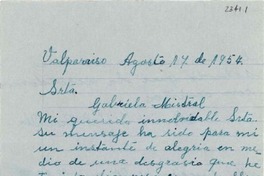 2241
Valparaiso Agosto 17 de 1954.
Srta.
Gabriela Mistral
Mi querida innolvidable Srta.
Su mensaje ha sido para mi
un instante de alegria en me
dio de una desgrasia que he